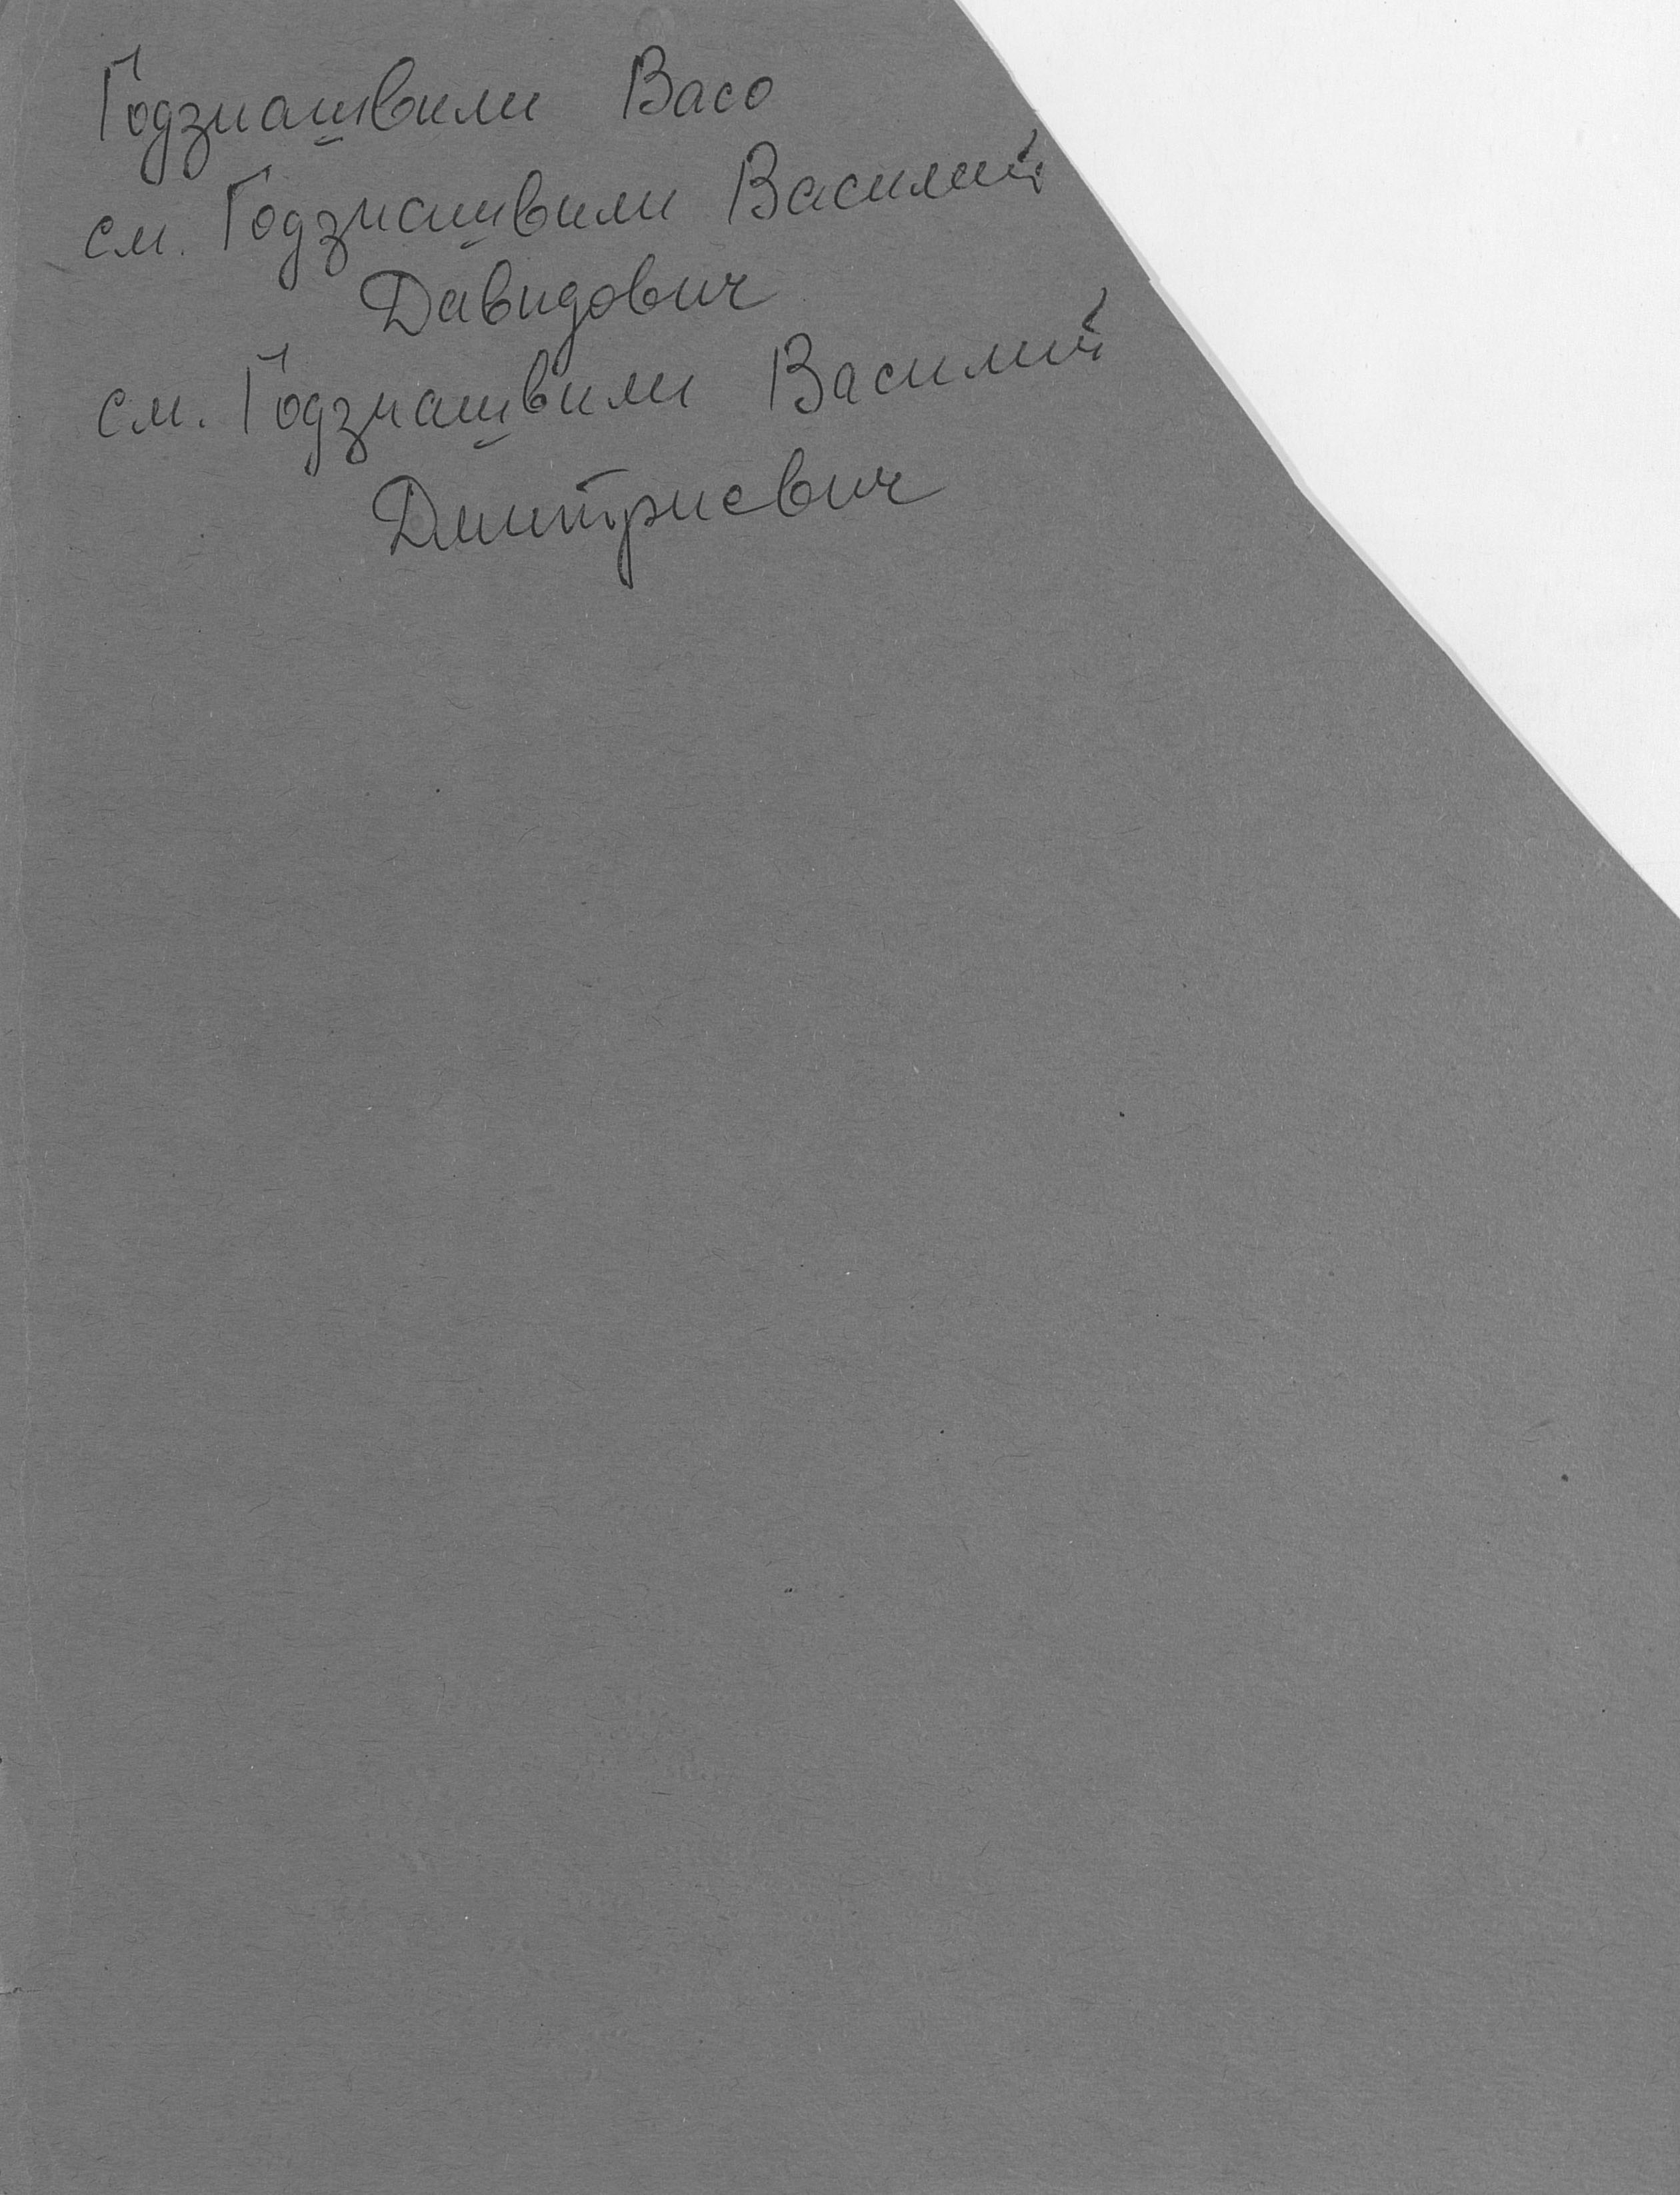 Годзиашвили Васо
см. Годзиашвили Василий
Давидович
см. Годзиашвили Василий
Дмитриевич